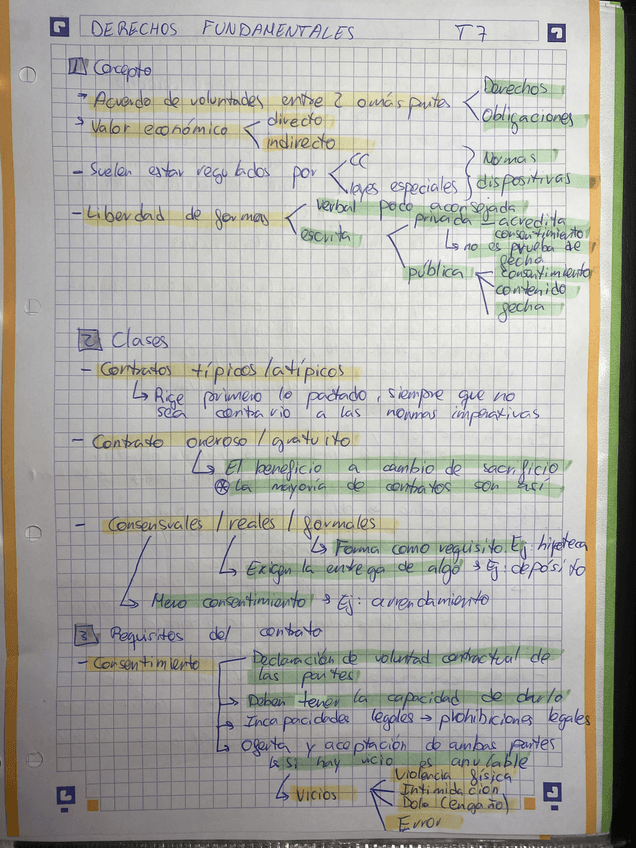 DERECHOS FUNDAMENTALES T7
1 Concepto
→ Acuerdo de voluntades entre 2 o más partes
Derechos
Obligaciones
→ Valor económico
directo
indirecto
- Suelen estar regulados por
CC
leyes especiales
Normas
dispositivas
- Libertad de formas
verbal poco aconsejada
escrita
privada - acredita
consentimiento
↳ no es prueba de
fecha
pública
consentimiento
contenido
fecha
2 Clases
- Contratos típicos/atípicos
↳ Rige primero lo pactado, siempre que no
sea contrario a las normas imperativas
- Contrato oneroso/gratuito
↳ El beneficio a cambio de sacrificio
⊛ La mayoría de contratos son así
- Consensuales/reales/formales
↳ Forma como requisito. Ej: hipoteca
↳ Exigen la entrega de algo → Ej: depósito
↳ Mero consentimiento → Ej: arrendamiento
3 Requisitos del contrato
- Consentimiento
Declaración de voluntad contractual de
las partes
→ Deben tener la capacidad de darlo
→ Incapacidades legales → prohibiciones legales
→ Oferta y aceptación de ambas partes
↳ si hay vicio es anulable
↳ Vicios
Violencia física
Intimidación
Dolo (engaño)
Error